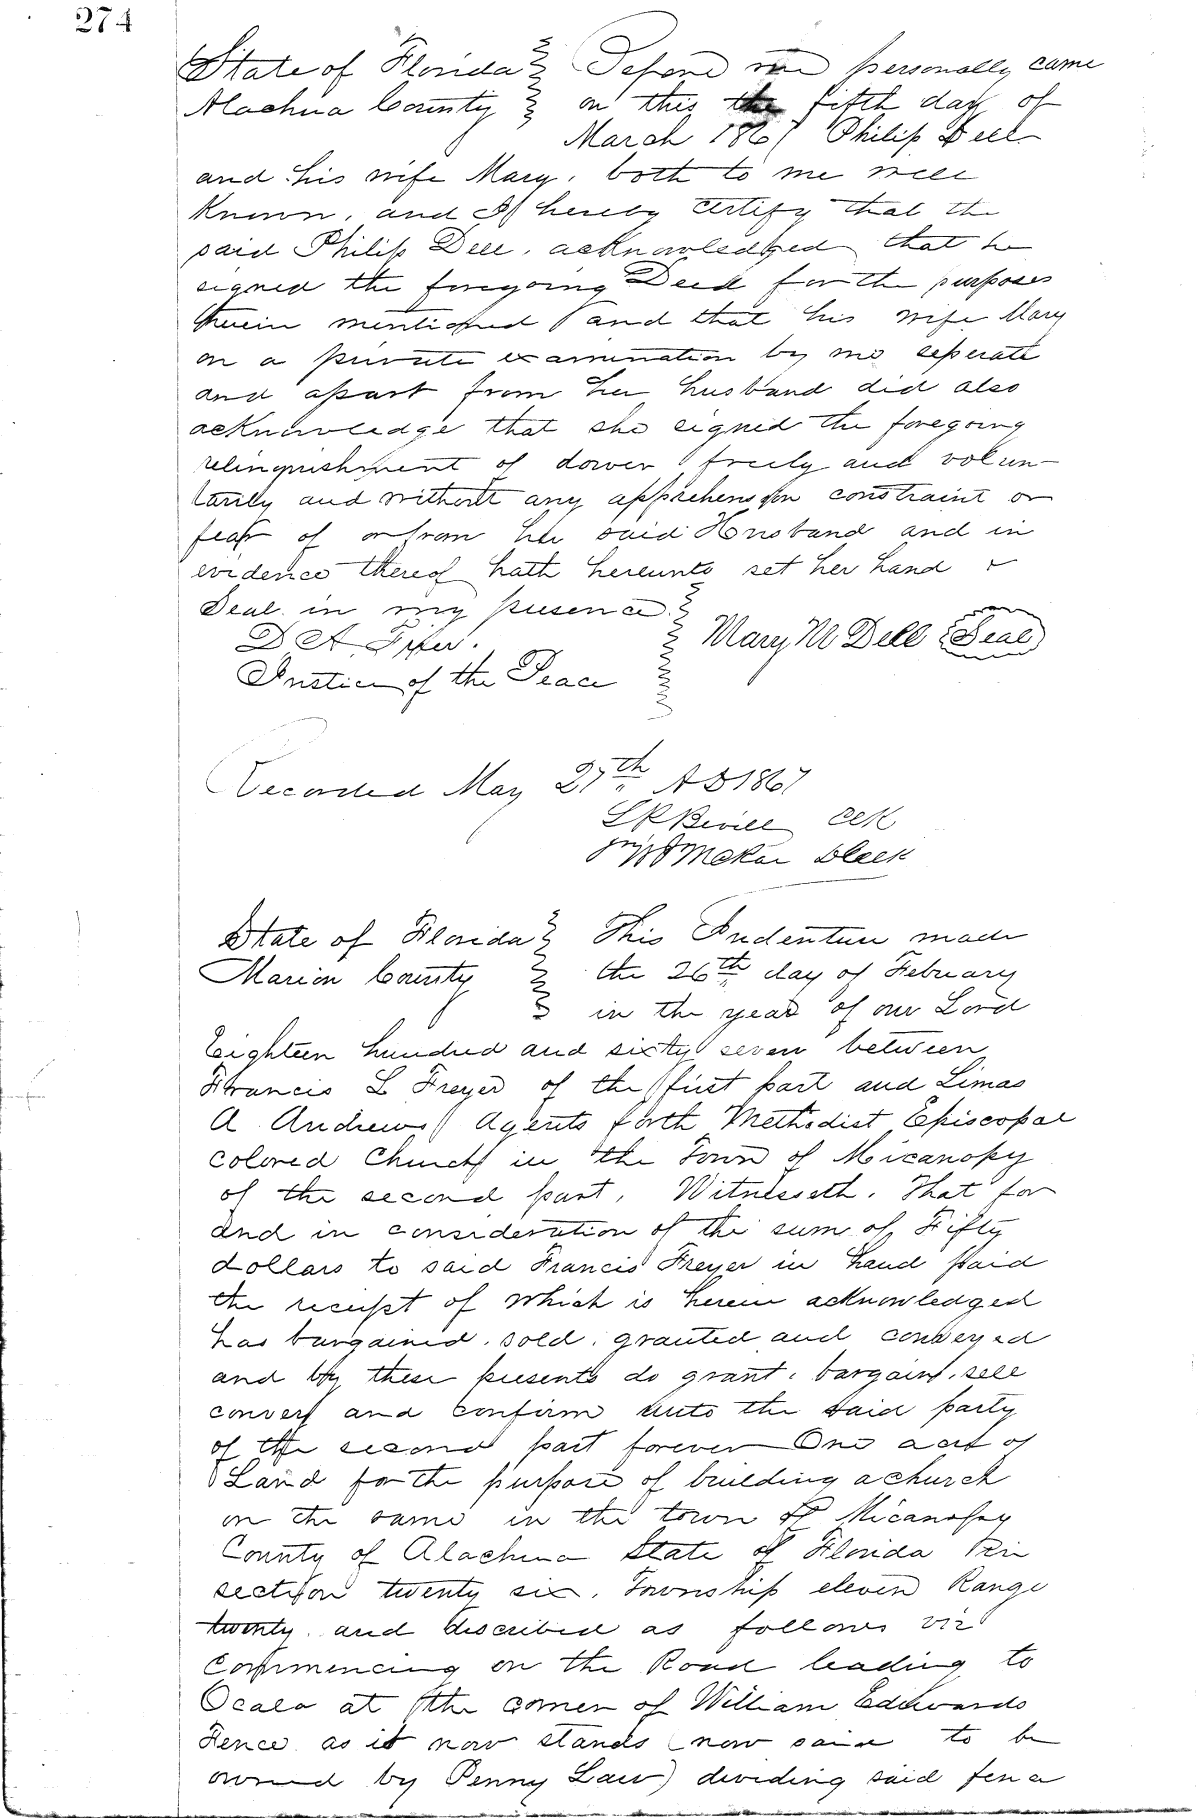 274
State of Florida } Before me personally came
Alachua County } on this the fifth day of
March 1867 Philip Dell
and his wife Mary, both to me well
Known, and I hereby certify that the
said Philip Dell, acknowledged that he
signed the foregoing Deed for the purposes
therein mentioned and that his wife Mary
on a private examination by me seperate
and apart from her husband did also
acknowledge that she signed the foregoing
relinquishment of dower freely and volun-
tarily and without any apprehension constraint or
fear of or from her said Husband and in
evidence thereof hath hereunto set her hand &
Seal in my presence }
Mary M Dell (Seal)
D A
Justice of the Peace
Recorded May 27th AD 1867
L R Bevill Clk
Clerk
State of Florida } This Indenture made
Marion County } the 26th day of February
} in the year of our Lord
Eighteen hundred and sixty seven between
Francis L Freyer of the first part and Limas
A Andrews Agents forth Methodist Episcopal
Colored Church in the Town of Micanopy
of the second part, Witnesseth, That for
and in consideration of the sum of Fifty
dollars to said Francis Freyer in hand paid
the receipt of which is herein acknowledged
has bargained, sold, granted and conveyed
and by these presents do grant, bargain, sell
convey and confirm unto the said party
of the second part forever One acre of
Land for the purpose of building a church
on the same in the town of Micanopy
County of Alachua State of Florida in
section twenty six, Township eleven Range
twenty, and discribed as follows viz
Commencing on the Road leading to
Ocala at the corner of William Edwards
Fence as it now stands (now said to be
owned by Penny Law) dividing said fence